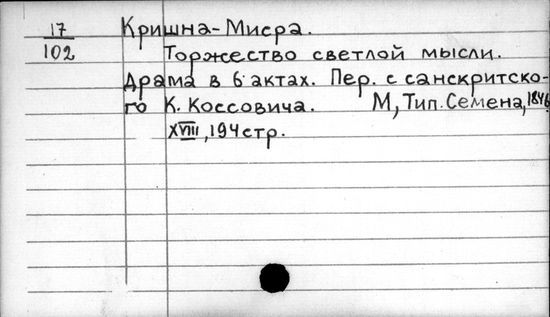 17 Кришна-Мисра.
102 Торжество светлой мысли.
Драма в 6 актах. Пер. с санскритско-
го К. Коссовича. М, Тип. Семена, 1846
XVIII, 194 стр.